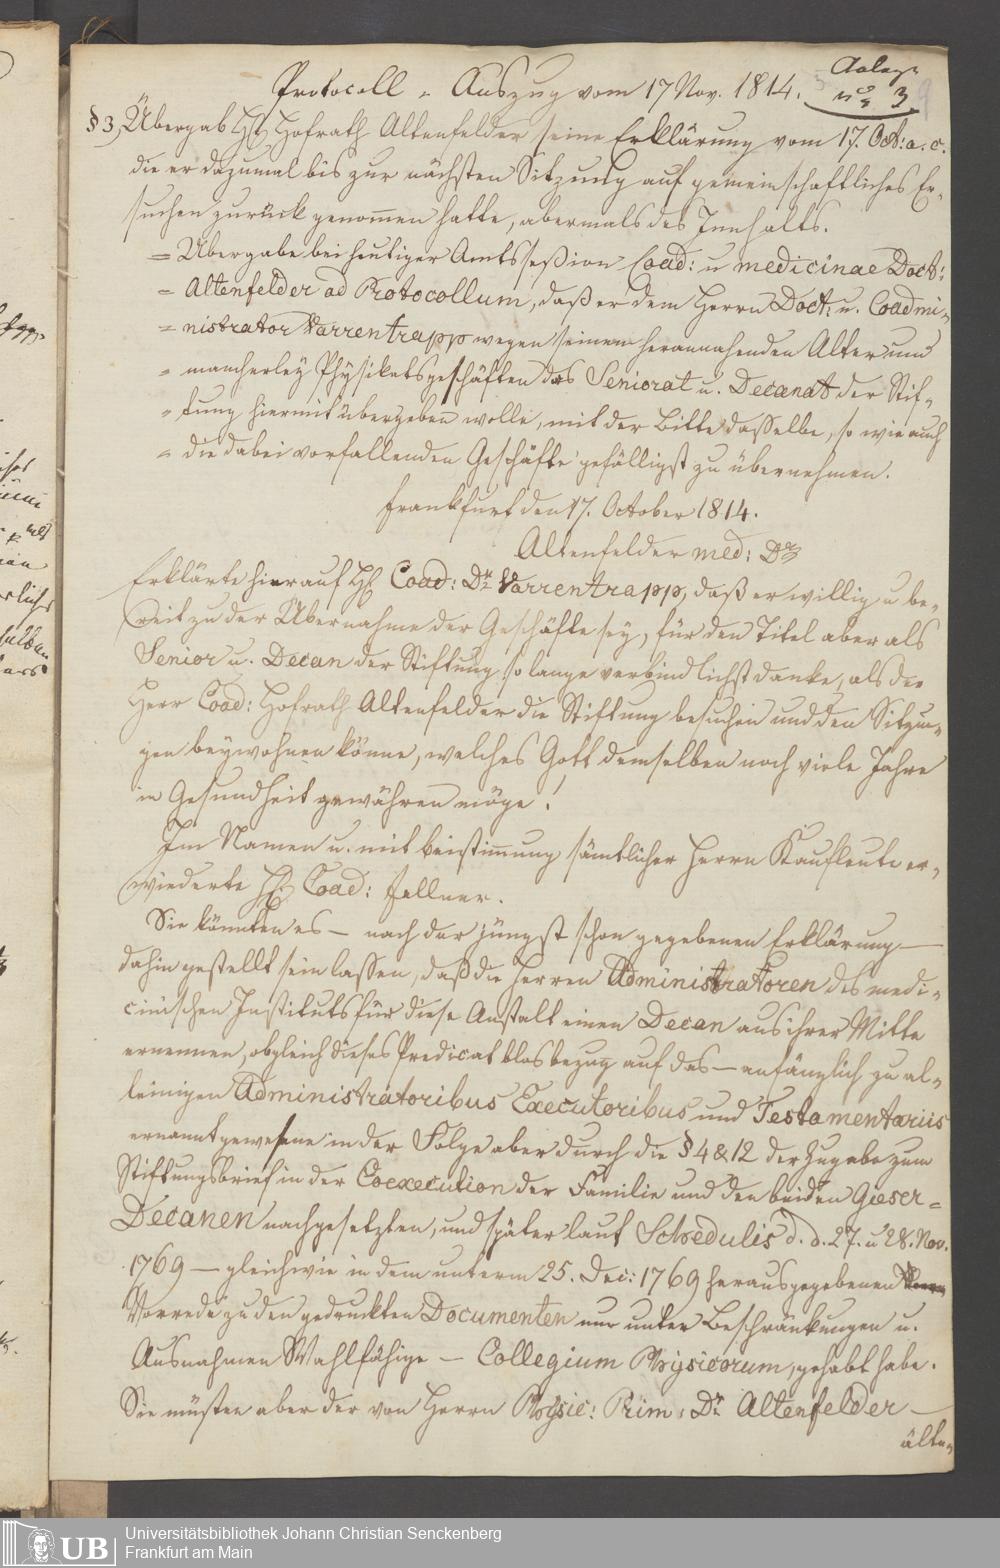 Anlage
Nº 3
Protocoll - Auszug vom 17 Nov. 1814.
§ 3, Übergab H. Hofrath Altenfelder seine Erklärung vom 17. Oct: a. c.
die er dazumal bis zur nächsten Sitzung auf gemeinschaftliches Er-
suchen zurück genom̄en hatte, abermals des Innhalts.
= Übergabe bei heutiger Amtsseßion Coad: u medicinae Doct:
= Altenfelder ad Protocollum, daß er dem Herrn Doct: u. Coadmi-
= nistrator Varrentrapp wegen seinem herannahenden Alter und
= mancherley Physikatsgeschäften das Seniorat u. Decanat der Stif-
= tung hiermit übergeben wolle, mit der Bitte dasselbe, so wie auch
= die dabei vorfallenden Geschäfte gefälligst zu übernehmen.
Frankfurt den 17. October 1814.
Altenfelder med: Dr
Erklärte hierauf H. Coad: Dr. Varrentrapp, daß er willig u be-
reit zu der Übernahme der Geschäfte sey, für den Titel aber als
Senior u. Decan der Stiftung so lange verbindlichst danke, als der
Herr Coad: Hofrath Altenfelder die Stiftung besuchen und den Sitzun-
gen beywohnen könne, welches Gott demselben noch viele Jahre
in Gesundheit gewähren möge!
Im Namen u. mit Beistim̄ung sämtlicher Herrn Kaufleute er-
wiederte H. Coad: Fellner.
Sie könnten es — nach der jüngst schon gegebenen Erklärung —
dahin gestellt sein lassen, daß die Herren Administratoren des medi-
cinischen Instituts für diese Anstalt einen Decan aus ihrer Mitte
ernennen, obgleich dieses Predicat blos bezug auf das — anfänglich zu al-
leinigen Administratoribus Executoribus und Testamentariis
ernannt gewesene in der Folge aber durch die § 4 & 12 der Zugabe zum
Stiftungsbrief in der Coexecution der Familie und den beiden Gieser-
Decanen nachgesetzten, und später laut Schedulis d. d. 27. u 28. Nov.
1769 — gleichwie in dem unterm 25. Dec: 1769 herausgegebenen
Vorrede zu den gedruckten Documenten nur unter Beschränkungen u.
Ausnahmen Wahlfähige — Collegium Physicorum, gehabt habe.
Sie müsten aber der von Herrn Physic: Prim: Dr. Altenfelder —
älte-
Universitätsbibliothek Johann Christian Senckenberg
Frankfurt am Main
UB